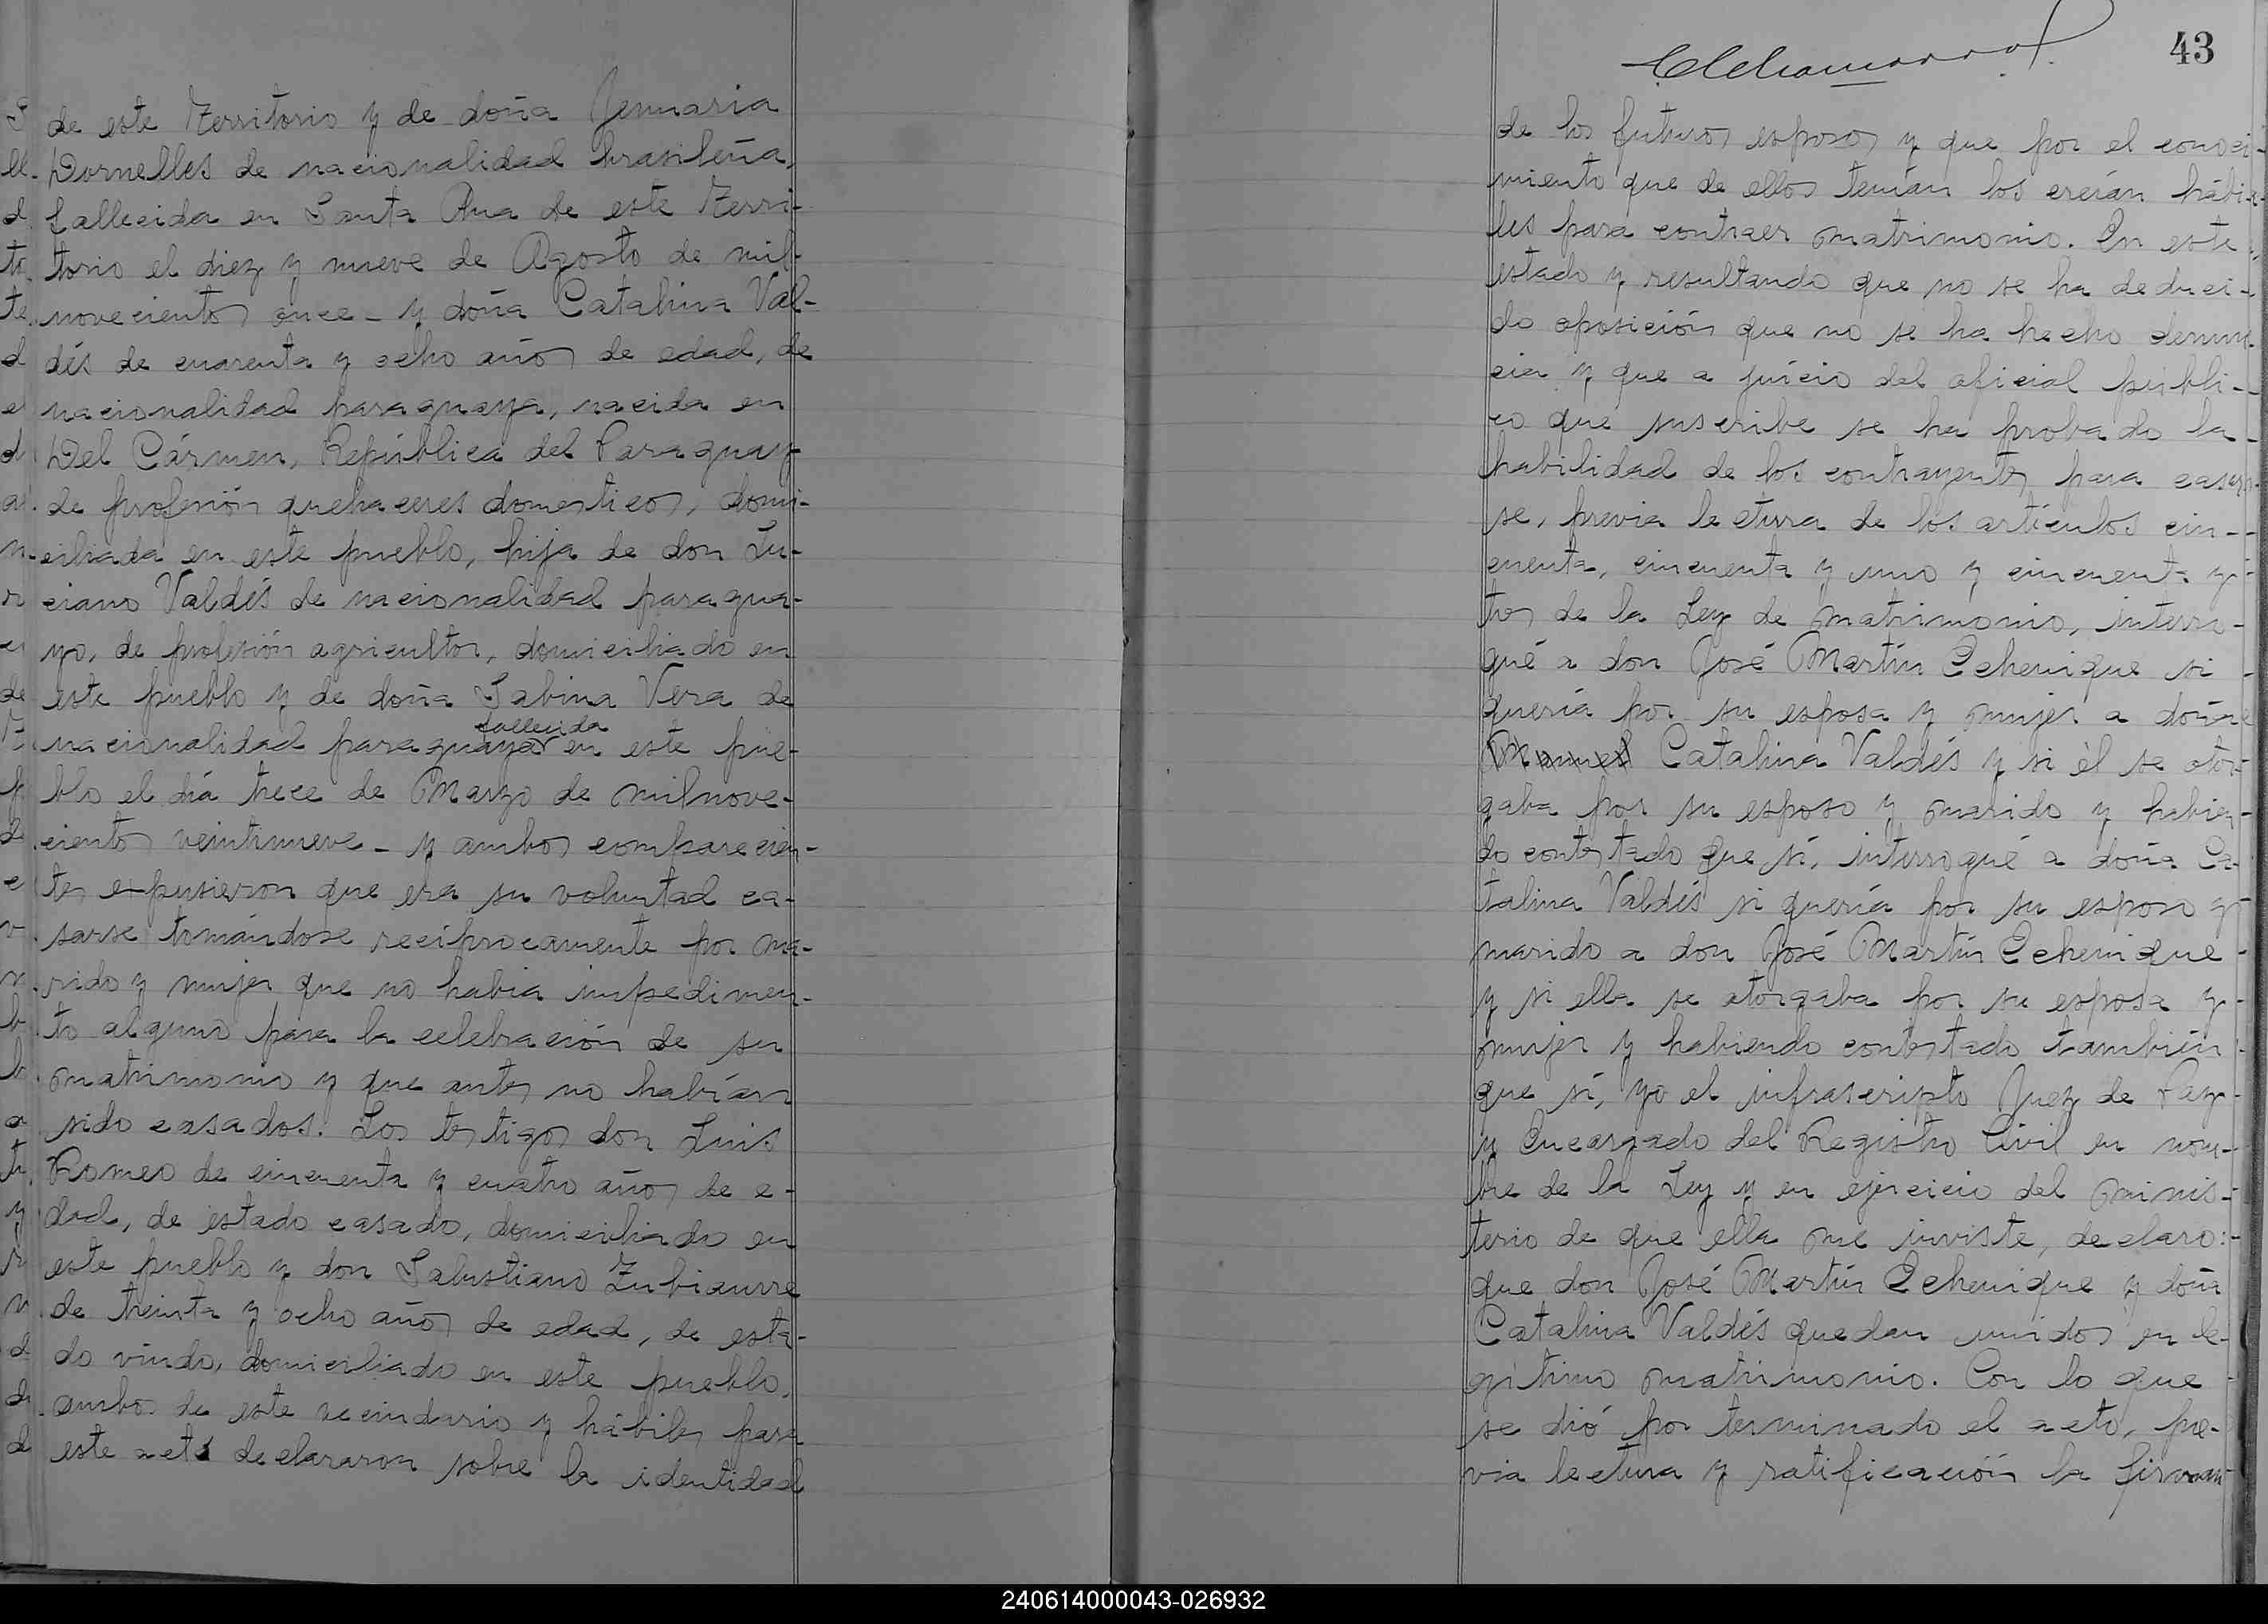 de este Territorio y de doña Jenuaria
Dornelles de nacionalidad brasileña,
fallecida en Santa Ana de este Terri-
torio el diez y nueve de Agosto de mil
novecientos once - y doña Catalina Val-
dés de cuarenta y ocho años de edad, de
nacionalidad paraguaya, nacida en
Del Cármen, República del Paraguay
de profesión quehaceres domesticos, domi-
ciliada en este pueblo, hija de don Lu-
ciano Valdés de nacionalidad paragua-
yo, de profesión agricultor, domiciliado en
este pueblo y de doña Sabina Vera de
fallecida
nacionalidad paraguaya en este pue-
blo el día trece de Marzo de mil nove-
cientos veintinueve - y ambos comparecien-
tes expusieron que era su voluntad ca-
sarse tomándose recíprocamente por ma-
rido y mujer que no habia impedimen-
to alguno para la celebración de su
matrimonio y que antes no habían
sido casados. Los testigos don Luis
Romeo de cincuenta y cuatro años de e-
dad, de estado casado, domiciliado en
este pueblo y don Salustiano Zubiaurre
de treinta y ocho años de edad, de esta-
do viudo, domiciliado en este pueblo,
ambos de este vecindario y hábiles para
este acto declararon sobre la identidad
43
de los futuros esposos y que por el conoci-
miento que de ellos tenían los creían hábi-
les para contraer matrimonio. En este
estado y resultando que no se ha deduci-
do oposición que no se ha hecho denun
cia y que a juicio del oficial públi-
co que suscribe se ha probado la
habilidad de los contrayentes para casar-
se, previa lectura de los artículos cin-
cuenta, cincuenta y uno y cincuenta y
tres de la Ley de matrimonio, interro-
gué a don José Martín Echenique si
quería por su esposa y mujer a doña
Manuel Catalina Valdés y si él se otor
gaba por su esposo y marido y habien-
do contestado que sí, interrogué a doña Ca-
talina Valdés si quería por su esposo y
marido a don José Martín Echenique
y si ella se otorgaba por su esposa y
mujer y habiendo contestado también
que sí, yo el infrascripto Juez de Paz
y Encargado del Registro Civil en nom-
bre de la Ley y en ejercicio del minis-
terio de que ella me inviste, declaro:
que don José Martín Echenique y doña
Catalina Valdés quedan unidos en le-
gítimo matrimonio. Con lo que
se dió por terminado el acto, pre-
via lectura y ratificación la firman
240614000043-026932